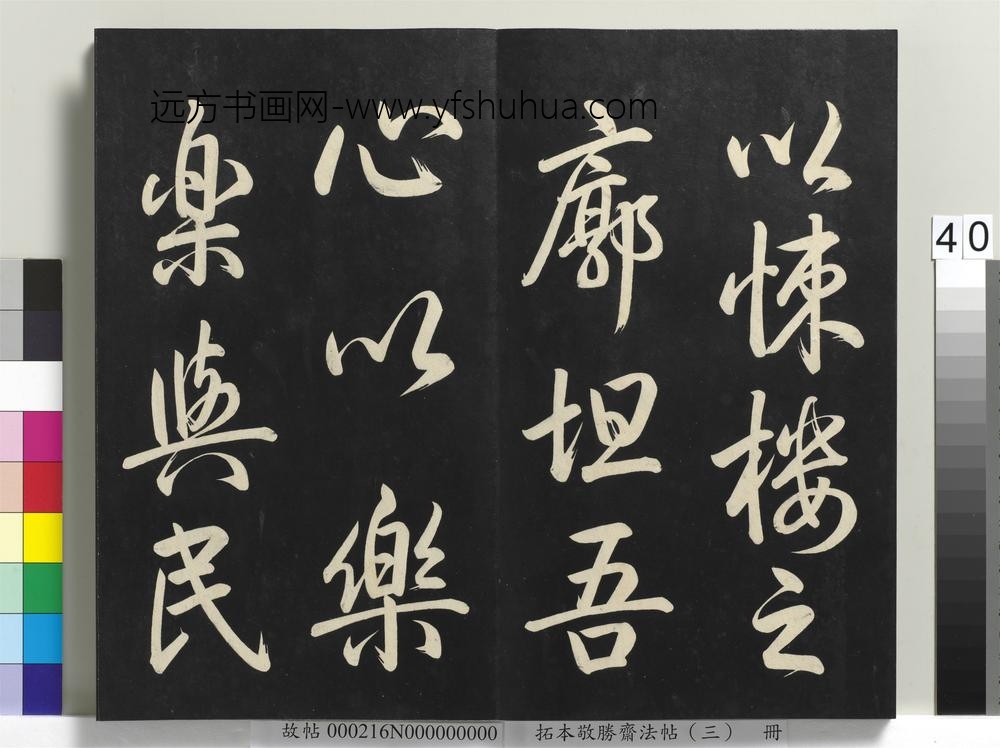 以悚樓之
廓坦吾
心以樂
樂與民
远方书画网-www.yfshuhua.com
40
故帖 000216N000000000 拓本敬勝齋法帖（三） 冊